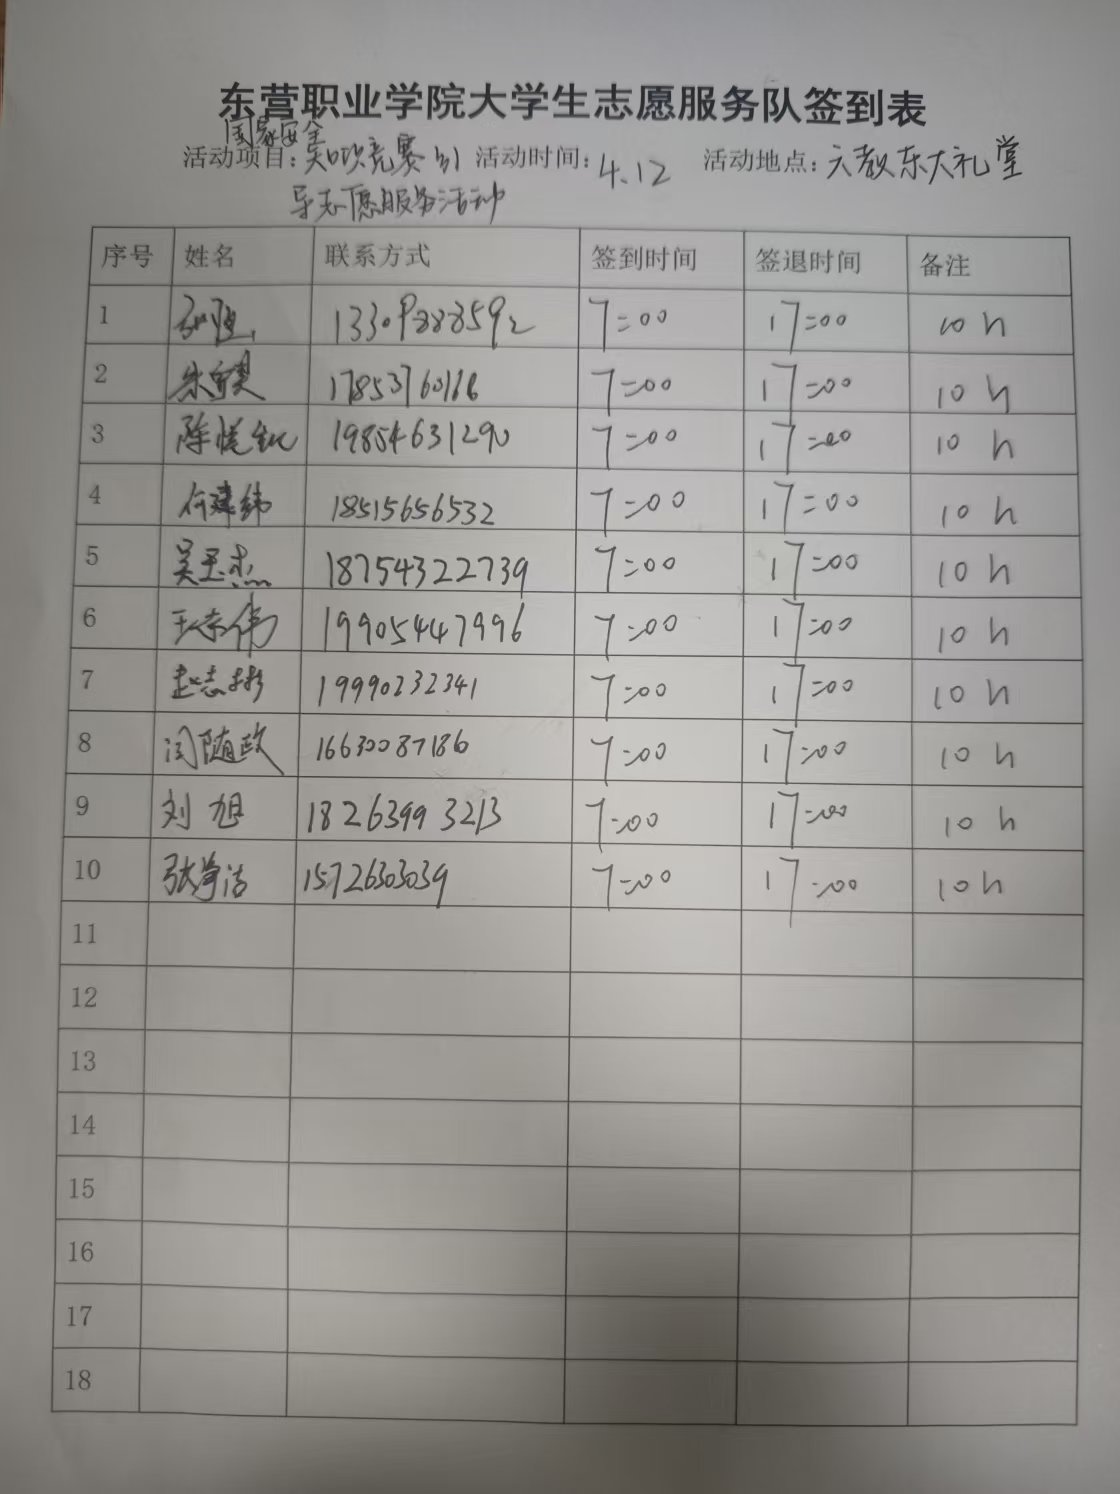 东营职业学院大学生志愿服务队签到表
国家安全
活动项目：知识竞赛引 活动时间：4.12 活动地点：六教东大礼堂
导志愿服务活动
序号 姓名 联系方式 签到时间 签退时间 备注
1 13309888592 7:00 17:00 10h
2 17853760166 7:00 17:00 10h
3 陈 19854631290 7:00 17:00 10h
4 何建纬 18515656532 7:00 17:00 10h
5 吴玉杰 18754322739 7:00 17:00 10h
6 王宗伟 19905447996 7:00 17:00 10h
7 赵志彬 19990232341 7:00 17:00 10h
8 闫随政 16630087186 7:00 17:00 10h
9 刘旭 18263993213 7:00 17:00 10h
10 张学洁 15726303039 7:00 17:00 10h
11
12
13
14
15
16
17
18